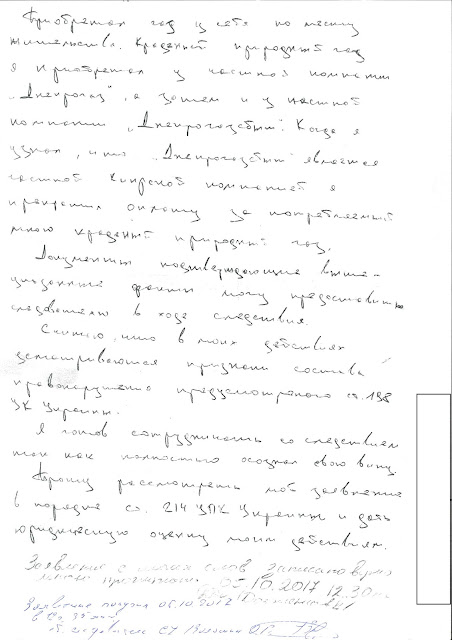 Приобретал газ у себя по месту
жительства. Краденый природный газ
я приобретал у частной компании
„Днепрогаз“, а затем и у частной
компании „Днепрогазсбыт“. Когда я
узнал, что „Днепрогазсбыт“ является
частной Кипрской компанией я
прекратил оплату за потребляемый
мною краденый природный газ.
Документы подтверждающие выше-
указанные факты могу предоставить
следователю в ходе следствия.
Считаю, что в моих действиях
усматриваются признаки состава
правонарушения предусмотреного ст. 198
УК Украины.
Я готов сотрудничать со следствием
так как полностью осознал свою вину.
Прошу рассмотреть моё заявление
в порядке ст. 214 УПК Украины и дать
юридическую оценку моим действиям.
Заявление с моих слов записано верно
мною прочитано 05.10.2017 12.30
Заявление получил 05.10.2017